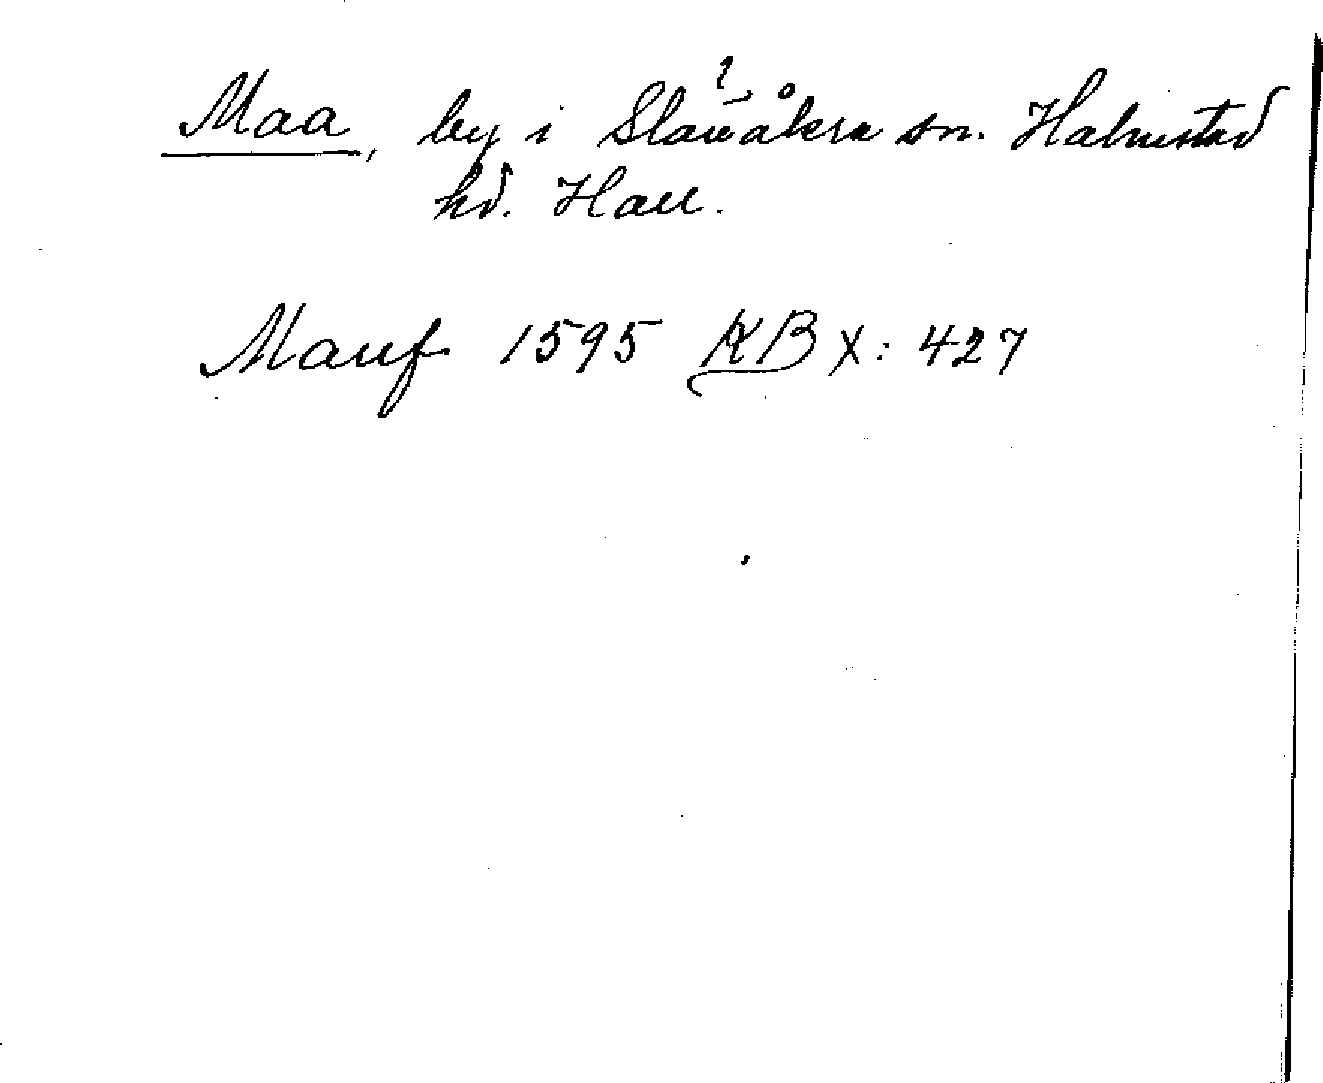 Maa, by i Slättåkra sn. Halmstad
hd. Hall.
Mauf 1595 KB X: 427